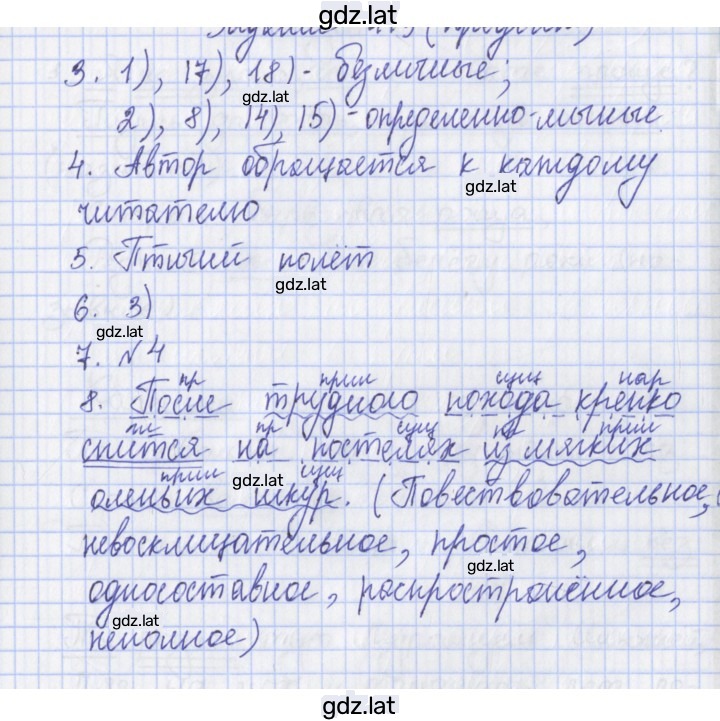 gdz.lat
3. 1), 17), 18) - безличные;
gdz.lat
2), 8), 14), 15) - определенно-личные
4. Автор обращается к каждому
gdz.lat
читателю
5. Птичий полёт
gdz.lat
6. 3)
gdz.lat
7. №4
пр прил сущ нар
8. После трудного похода крепко
гл пр сущ пр прил
спится на постелях из мягких
прил сущ
оленьих шкур. (Повествовательное,
gdz.lat
невосклицательное, простое,
gdz.lat
односоставное, распространённое,
gdz.lat
неполное)
gdz.lat